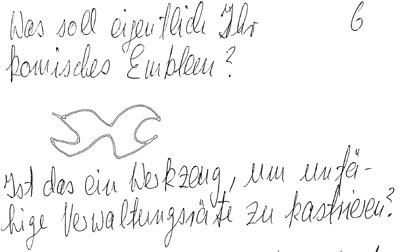 Was soll eigentlich Ihr 6
komisches Emblem?
Ist das ein Werkzeug, um unfä-
hige Verwaltungsräte zu kastrieren?